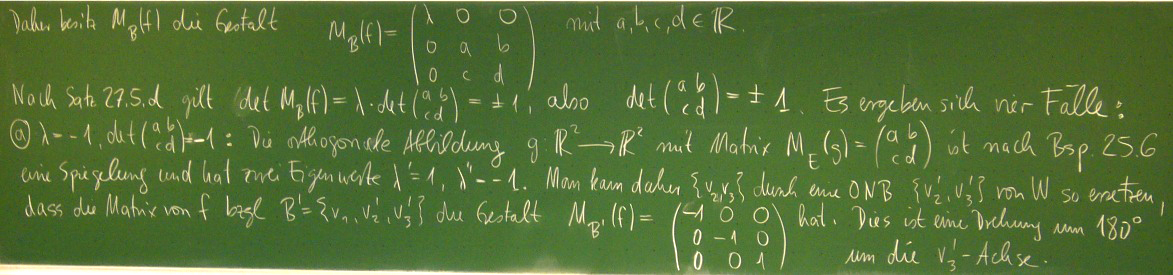 Daher besitzt M_B(f) die Gestalt M_B(f) = \begin{pmatrix} λ & 0 & 0 \\ 0 & a & b \\ 0 & c & d \end{pmatrix} mit a, b, c, d ∈ ℝ.
Nach Satz 27.5.d gilt det M_B(f) = λ · det \begin{pmatrix} a & b \\ c & d \end{pmatrix} = ±1, also det \begin{pmatrix} a & b \\ c & d \end{pmatrix} = ±1. Es ergeben sich vier Fälle:
ⓐ λ = -1, det \begin{pmatrix} a & b \\ c & d \end{pmatrix} = -1: Die orthogonale Abbildung g: ℝ² → ℝ² mit Matrix M_E(g) = \begin{pmatrix} a & b \\ c & d \end{pmatrix} ist nach Bsp. 25.6
eine Spiegelung und hat zwei Eigenwerte λ' = 1, λ'' = -1. Man kann daher {v₂, v₃} durch eine ONB {v₂', v₃'} von W so ersetzen,
dass die Matrix von f bzgl B' = {v₁, v₂', v₃'} die Gestalt M_{B'}(f) = \begin{pmatrix} -1 & 0 & 0 \\ 0 & -1 & 0 \\ 0 & 0 & 1 \end{pmatrix} hat. Dies ist eine Drehung um 180°
um die v₃'-Achse.